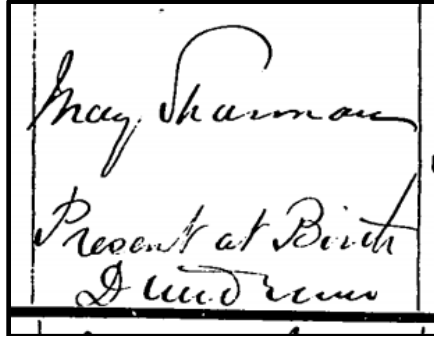 May Sharman
Present at Birth
Dundrum